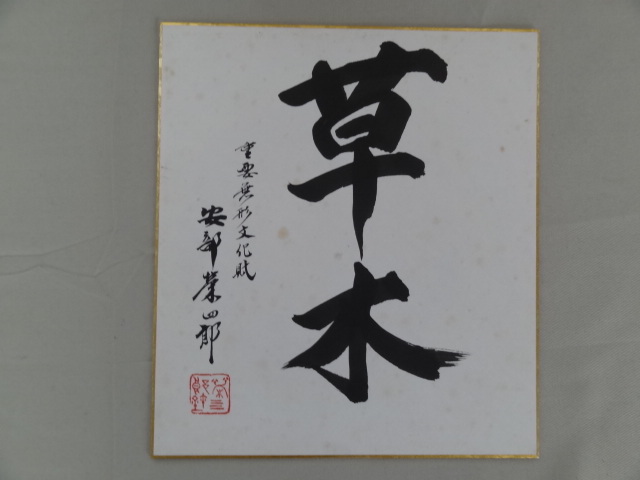 草木
重要無形文化財
安部榮四郎